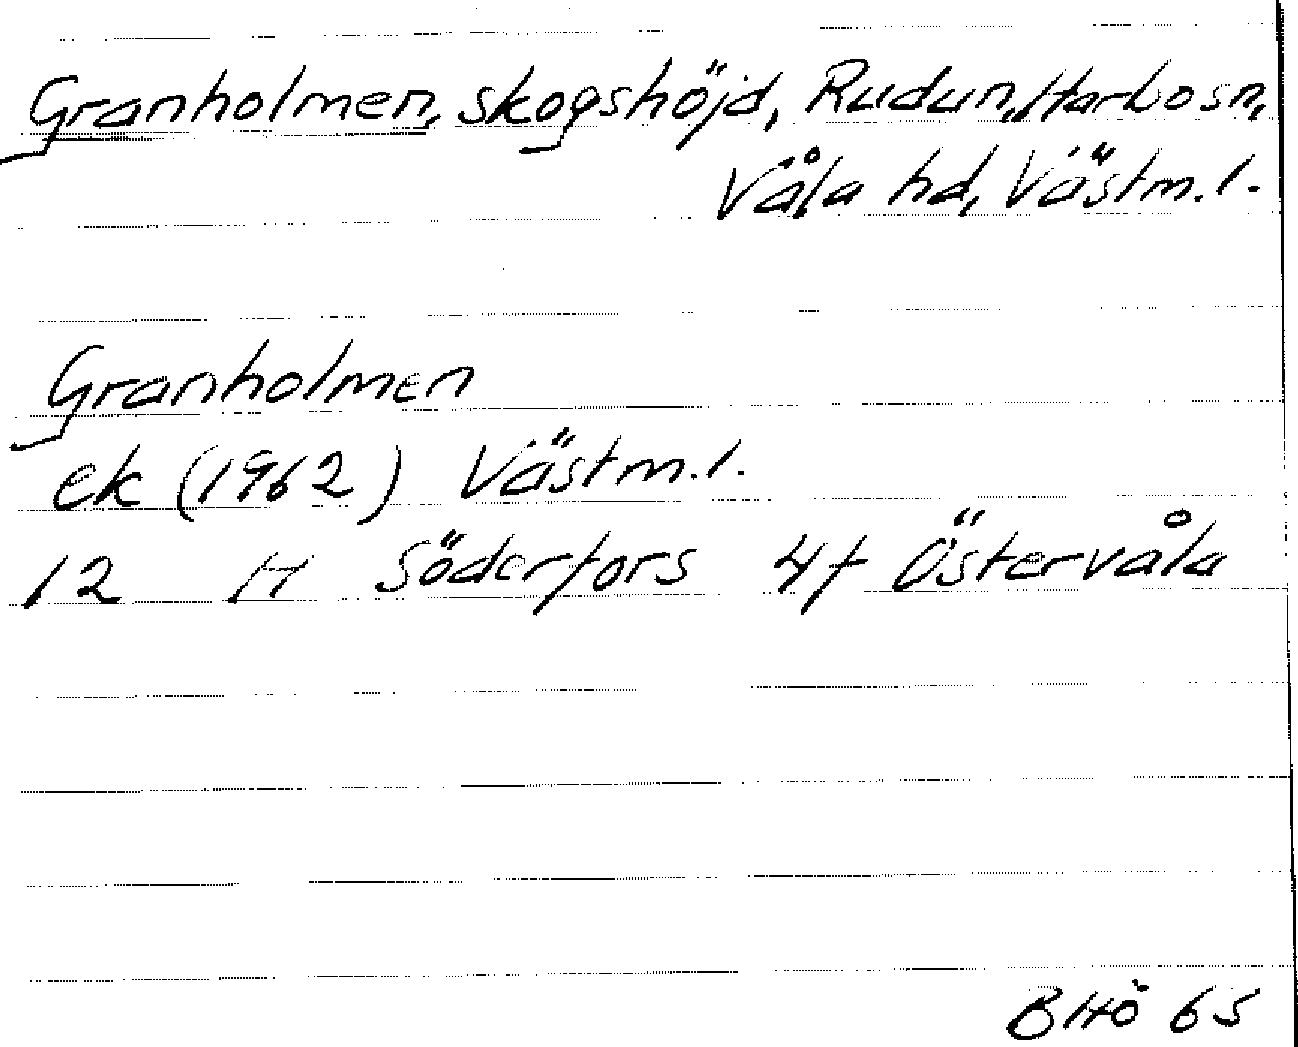 Granholmen, skogshöjd, Rudun, Harbo sn,
Våla hd, Västm. l.
Granholmen
ek (1962) Västm. l.
12 H Söderfors 4f Östervåla
BHö 65